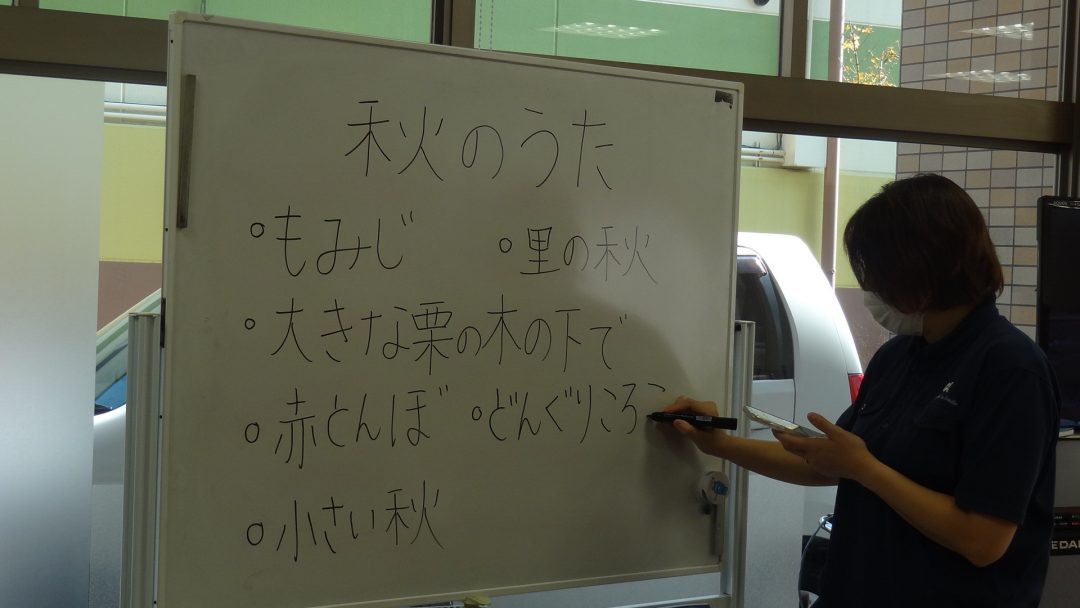 秋のうた
°もみじ °里の秋
°大きな栗の木の下で
°赤とんぼ °どんぐりころこ
°小さい秋
EDAI